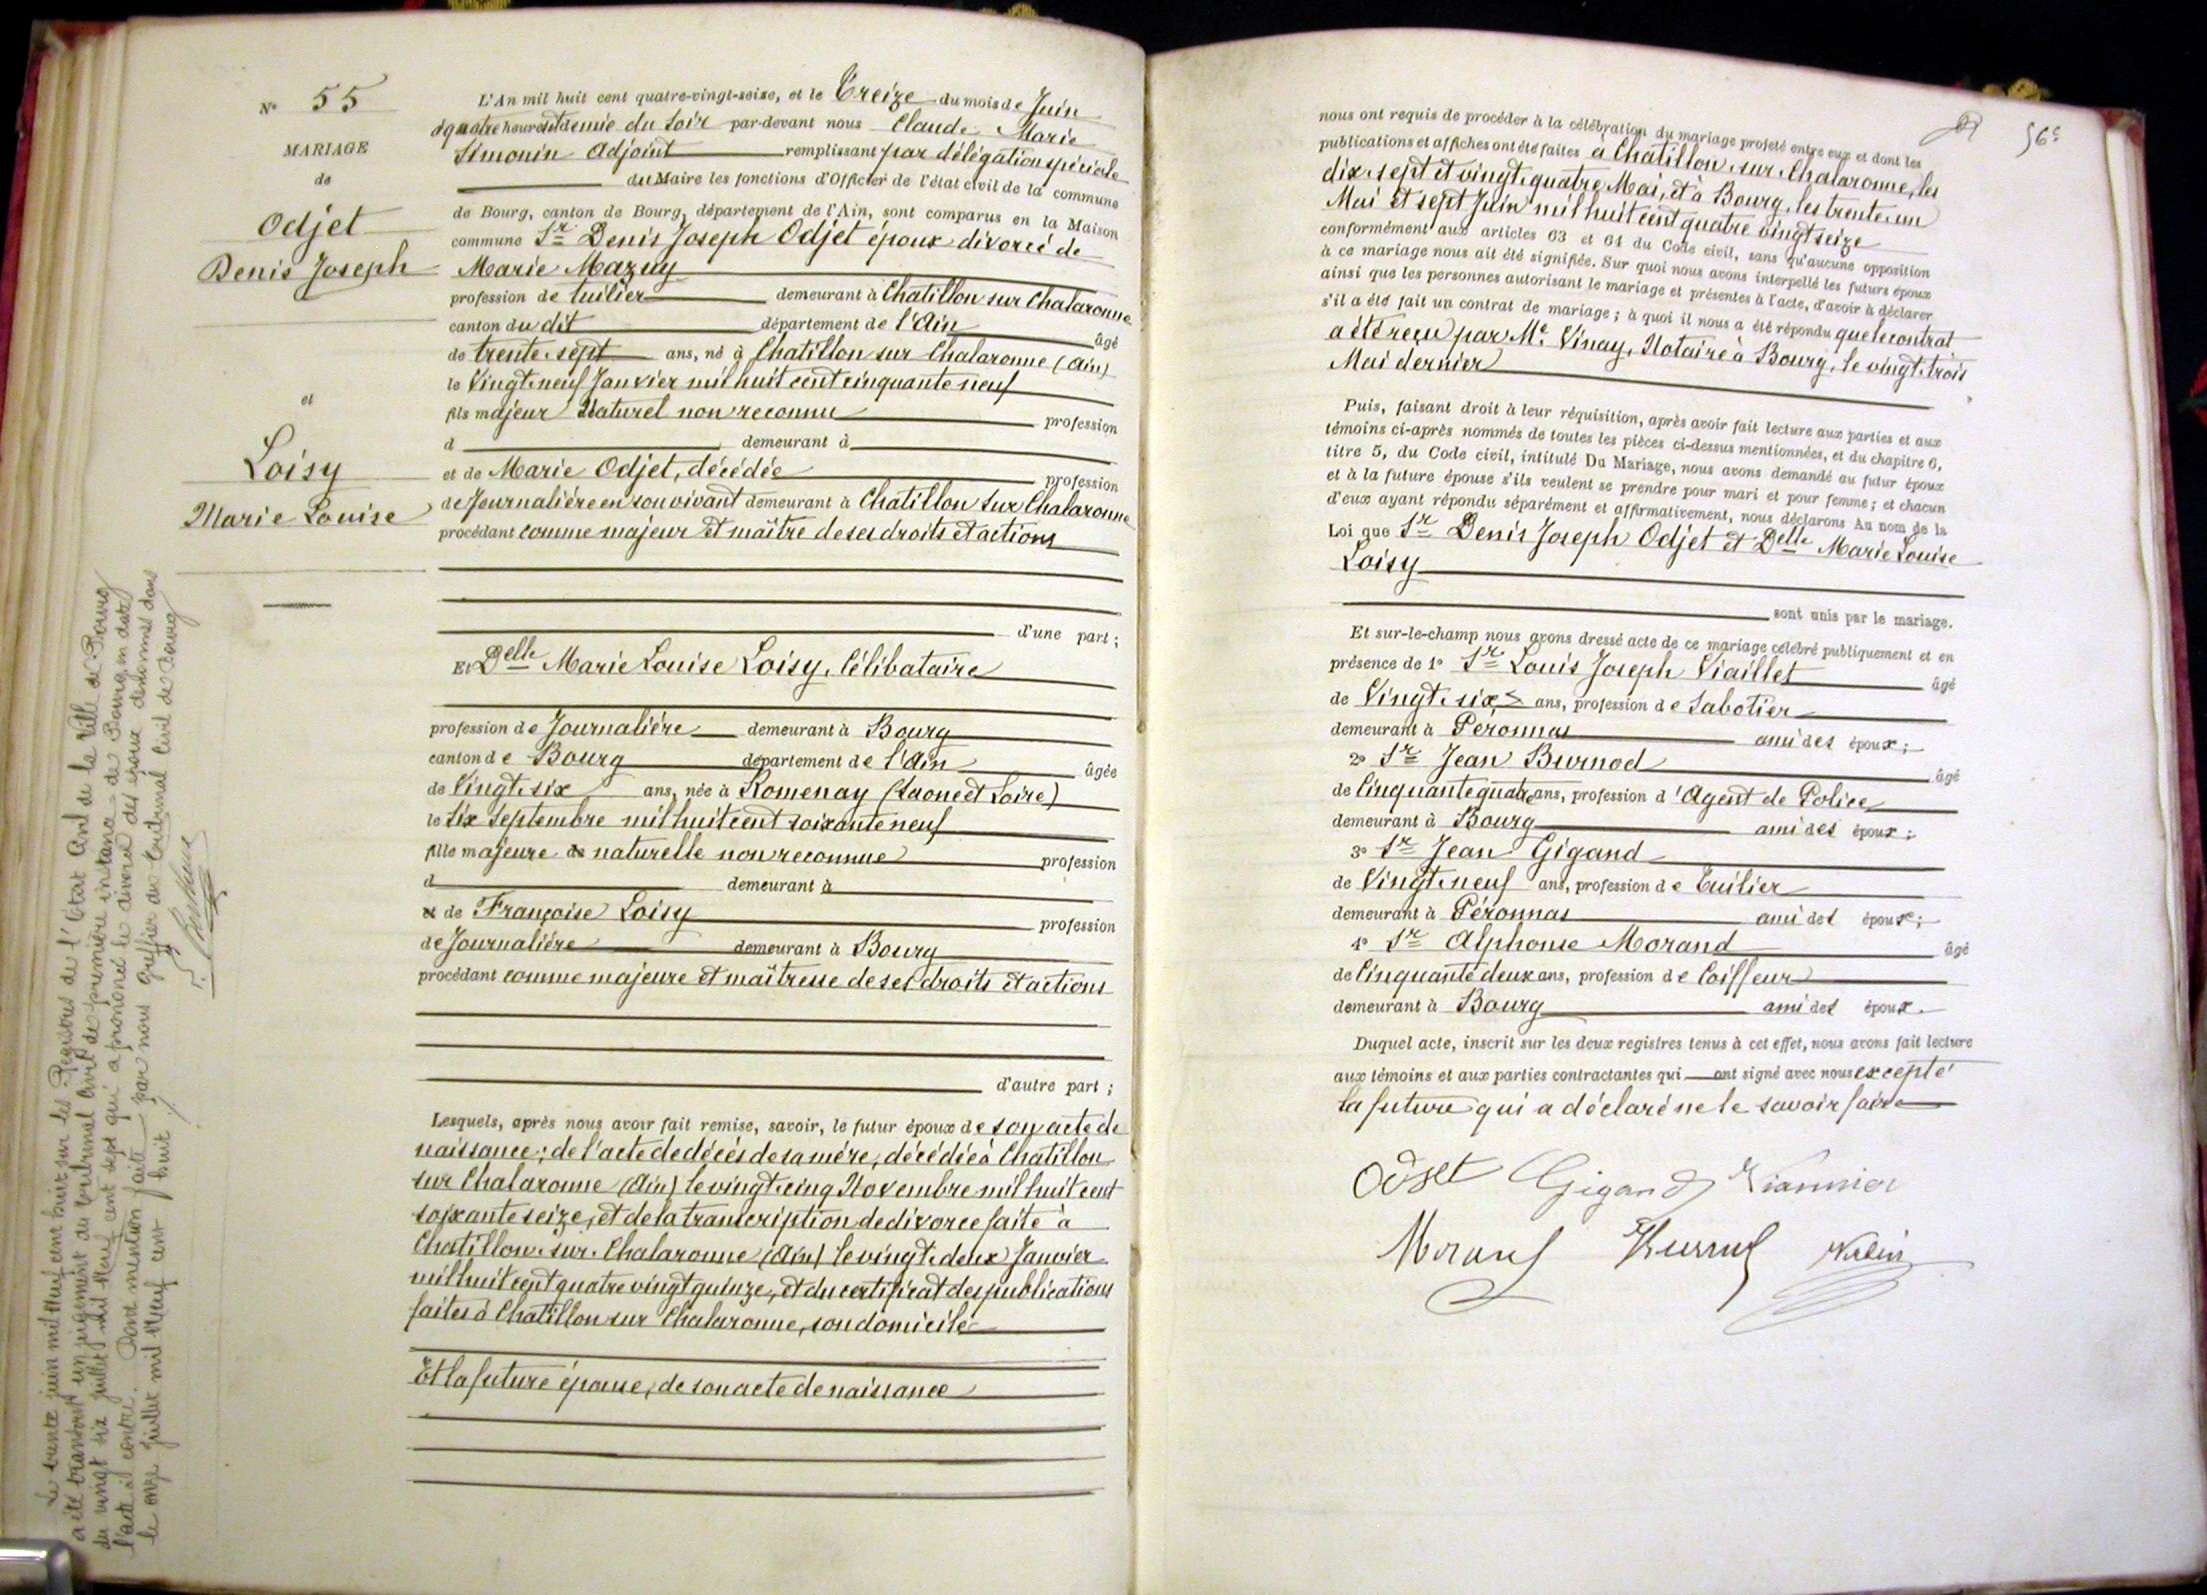 N° 55
MARIAGE
de
Odjet
Denis Joseph
et
Loisy
Marie Louise
Le trente juin mil neuf cent huit sur les Registres de l'Etat Civil de la Ville de Bourg
a été transcrit un jugement du tribunal Civil de première instance de Bourg en date
du vingt six juillet mil neuf cent sept qui a prononcé le divorce des époux dénommés dans
l'acte ci contre. Dont mention faite par nous Greffier du tribunal Civil de Bourg
le onze juillet mil neuf cent huit
L'An mil huit cent quatre-vingt-seize, et le Treize du mois de Juin
à quatre heures et demie du soir par-devant nous Claude Marie
Simonin Adjoint remplissant par délégation spéciale
du Maire les fonctions d'Officier de l'état civil de la commune
de Bourg, canton de Bourg, département de l'Ain, sont comparus en la Maison
commune Sr Denis Joseph Odjet époux divorcé de
Marie Mazuy
profession de tuilier demeurant à Chatillon sur Chalaronne
canton du dit département de l'Ain âgé
de trente-sept ans, né à Chatillon sur Chalaronne (Ain)
le Vingt-neuf Janvier mil huit cent cinquante neuf
fils majeur Naturel non reconnu profession
d demeurant à
et de Marie Odjet, décédée profession
de Journalière en son vivant demeurant à Chatillon sur Chalaronne
procédant comme majeur et maître de ses droits et actions
d'une part;
Et Delle Marie Louise Loisy, Célibataire
profession de Journalière demeurant à Bourg
canton de Bourg département de l'Ain âgée
de Vingt-six ans, née à Romenay (Saone et Loire)
le Six Septembre mil huit cent soixante neuf
fille majeure de naturelle non reconnue profession
d demeurant à
et de Françoise Loisy profession
de Journalière demeurant à Bourg
procédant comme majeure et maîtresse de ses droits et actions
d'autre part;
Lesquels, après nous avoir fait remise, savoir, le futur époux de son acte de
naissance; de l'acte de décès de sa mère, décédée à Chatillon
sur Chalaronne (Ain) le vingt-cinq Novembre mil huit cent
soixante seize, et de la transcription de divorce faite à
Chatillon-sur-Chalaronne (Ain) le vingt-deux Janvier
mil huit cent quatre vingt quinze, et du certificat des publications
faites à Chatillon sur Chalaronne, son domicile
Et la future épouse, de son acte de naissance
56e
nous ont requis de procéder à la célébration du mariage projeté entre eux et dont les
publications et affiches ont été faites à Chatillon-sur-Chalaronne, les
dix-sept et vingt-quatre Mai, et à Bourg, les trente-un
Mai et sept Juin mil huit cent quatre vingt seize
conformément aux articles 63 et 64 du Code civil, sans qu'aucune opposition
à ce mariage nous ait été signifiée. Sur quoi nous avons interpellé les futurs époux
ainsi que les personnes autorisant le mariage et présentes à l'acte, d'avoir à déclarer
s'il a été fait un contrat de mariage; à quoi il nous a été répondu que le contrat
a été reçu par Me Vinay, Notaire à Bourg, le vingt-trois
Mai dernier
Puis, faisant droit à leur réquisition, après avoir fait lecture aux parties et aux
témoins ci-après nommés de toutes les pièces ci-dessus mentionnées, et du chapitre 6,
titre 5, du Code civil, intitulé Du Mariage, nous avons demandé au futur époux
et à la future épouse s'ils veulent se prendre pour mari et pour femme; et chacun
d'eux ayant répondu séparément et affirmativement, nous déclarons Au nom de la
Loi que Sr Denis Joseph Odjet et Delle Marie Louise
Loisy
sont unis par le mariage.
Et sur-le-champ nous avons dressé acte de ce mariage célébré publiquement et en
présence de 1° Sr Louis Joseph Viaillet âgé
de Vingt-six ans, profession de Sabotier
demeurant à Péronnas ami des époux;
2° Sr Jean Burnod âgé
de Cinquante quatre ans, profession d'Agent de Police
demeurant à Bourg ami des époux;
3° Sr Jean Gigand
de Vingt-neuf ans, profession de Tuilier
demeurant à Péronnas ami des époux;
4° Sr Alphonse Morand âgé
de Cinquante deux ans, profession de Coiffeur
demeurant à Bourg ami des époux.
Duquel acte, inscrit sur les deux registres tenus à cet effet, nous avons fait lecture
aux témoins et aux parties contractantes qui ont signé avec nous excepté
la future qui a déclaré ne le savoir faire
Odjet Gigand
Morand